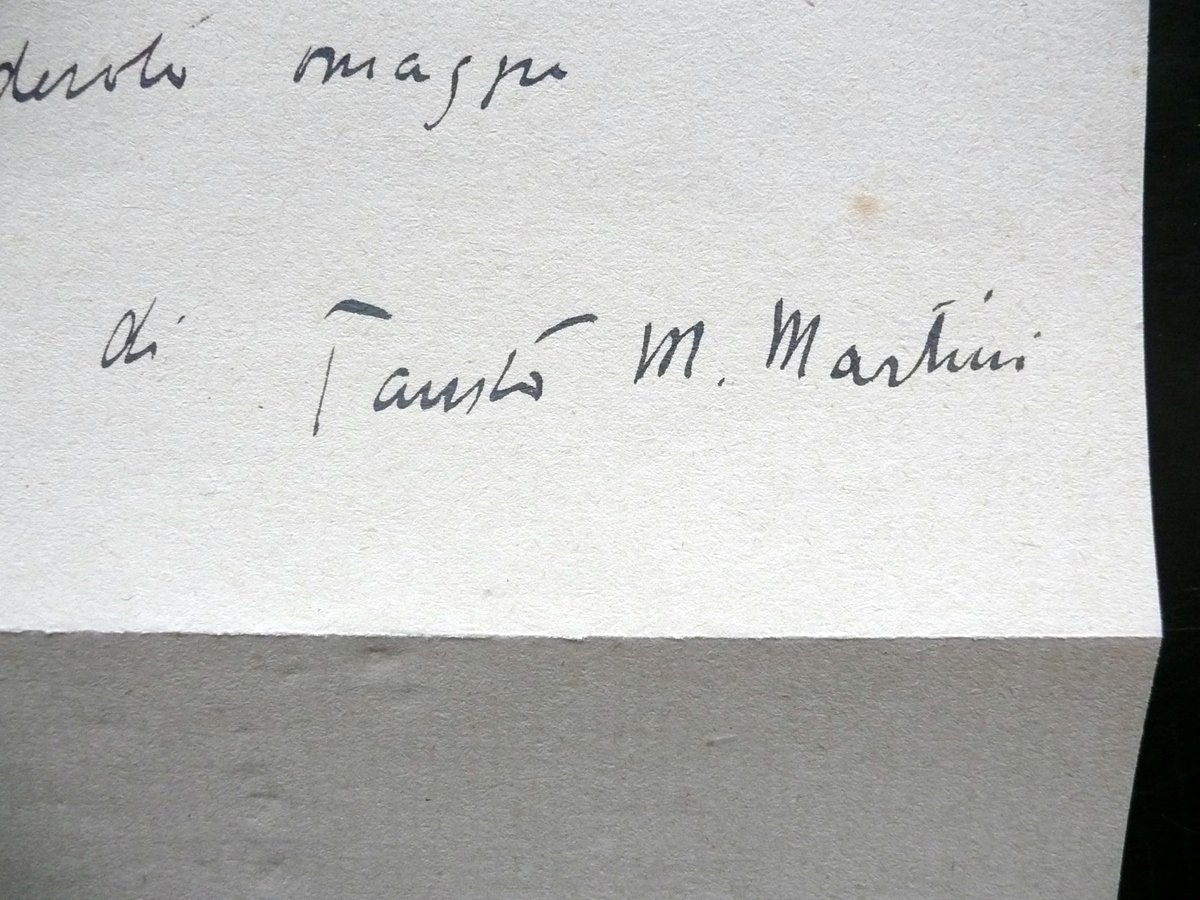 devoto omaggio
di Fausto M. Martini